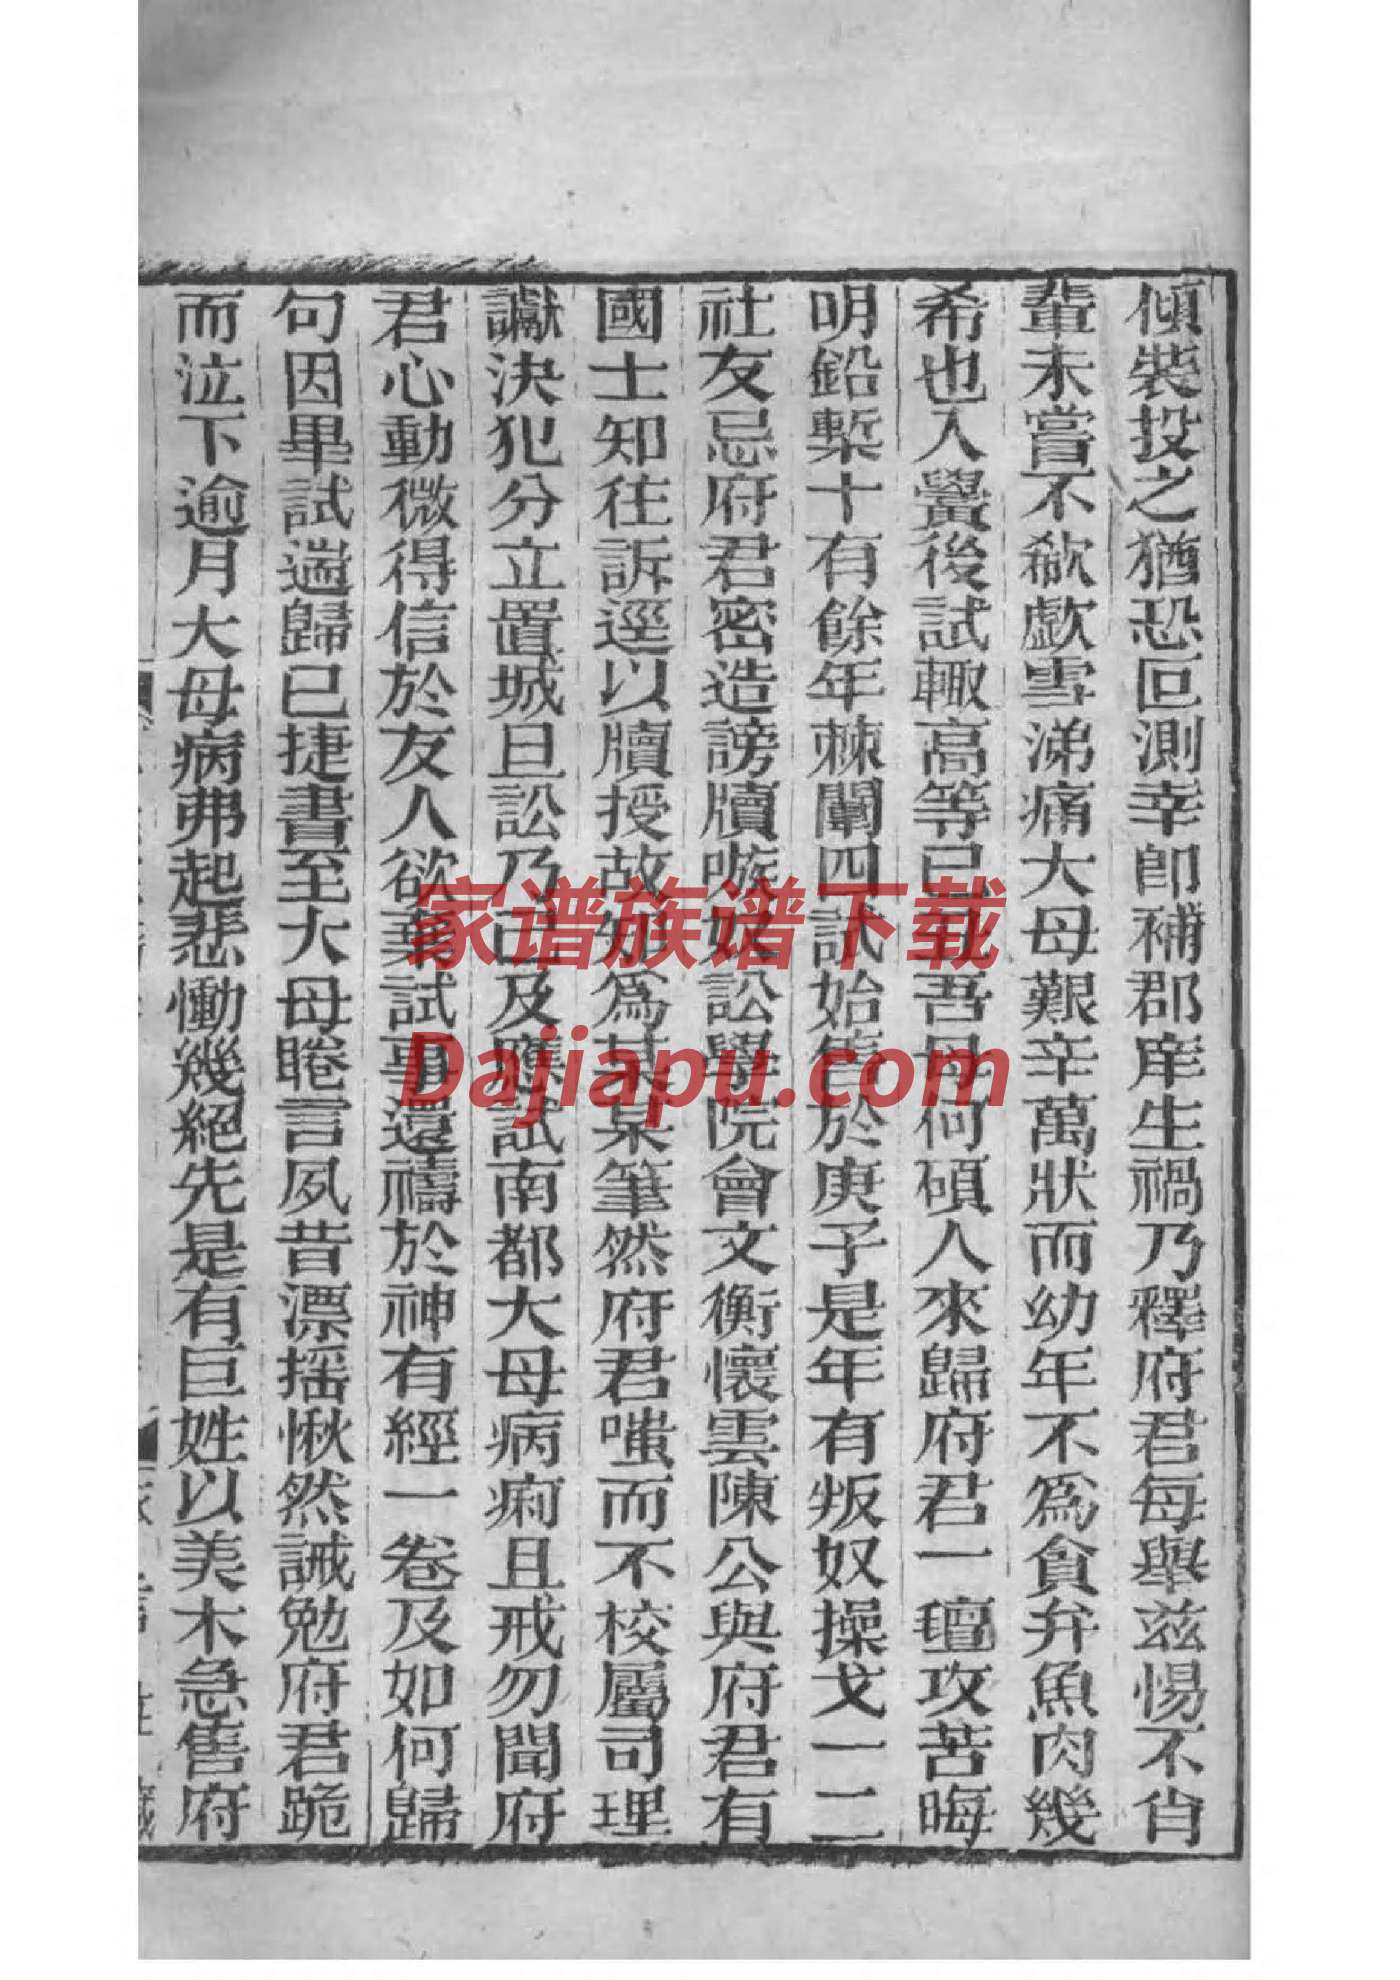 傾裝投之猶恐叵測幸卽補郡庠生禍乃釋府君每舉茲惕不肖
輩未嘗不欷歔雪涕痛大母艱辛萬狀而幼年不為貪弁魚肉幾
希也入黌後試輙高等已丑吾母何碩人來歸府君一氊攻苦晦
明鉛槧十有餘年棘闈四試始售於庚子是年有叛奴操戈一二
社友忌府君密造謗牘嗾奴訟學院會文衡懷雲陳公與府君有
國士知往訴逕以牘授故知為某某筆然府君嗤而不校屬司理
讞決犯分立置城旦訟乃已及應試南都大母病痢且戒勿聞府
君心動微得信於友人欲棄試事還禱於神有經一卷及如何歸
句因畢試遄歸已捷書至大母睠言夙昔漂搖愀然誡勉府君跪
而泣下逾月大母病弗起悲慟幾絕先是有巨姓以美木急售府
家谱族谱下载
Dajiapu.com